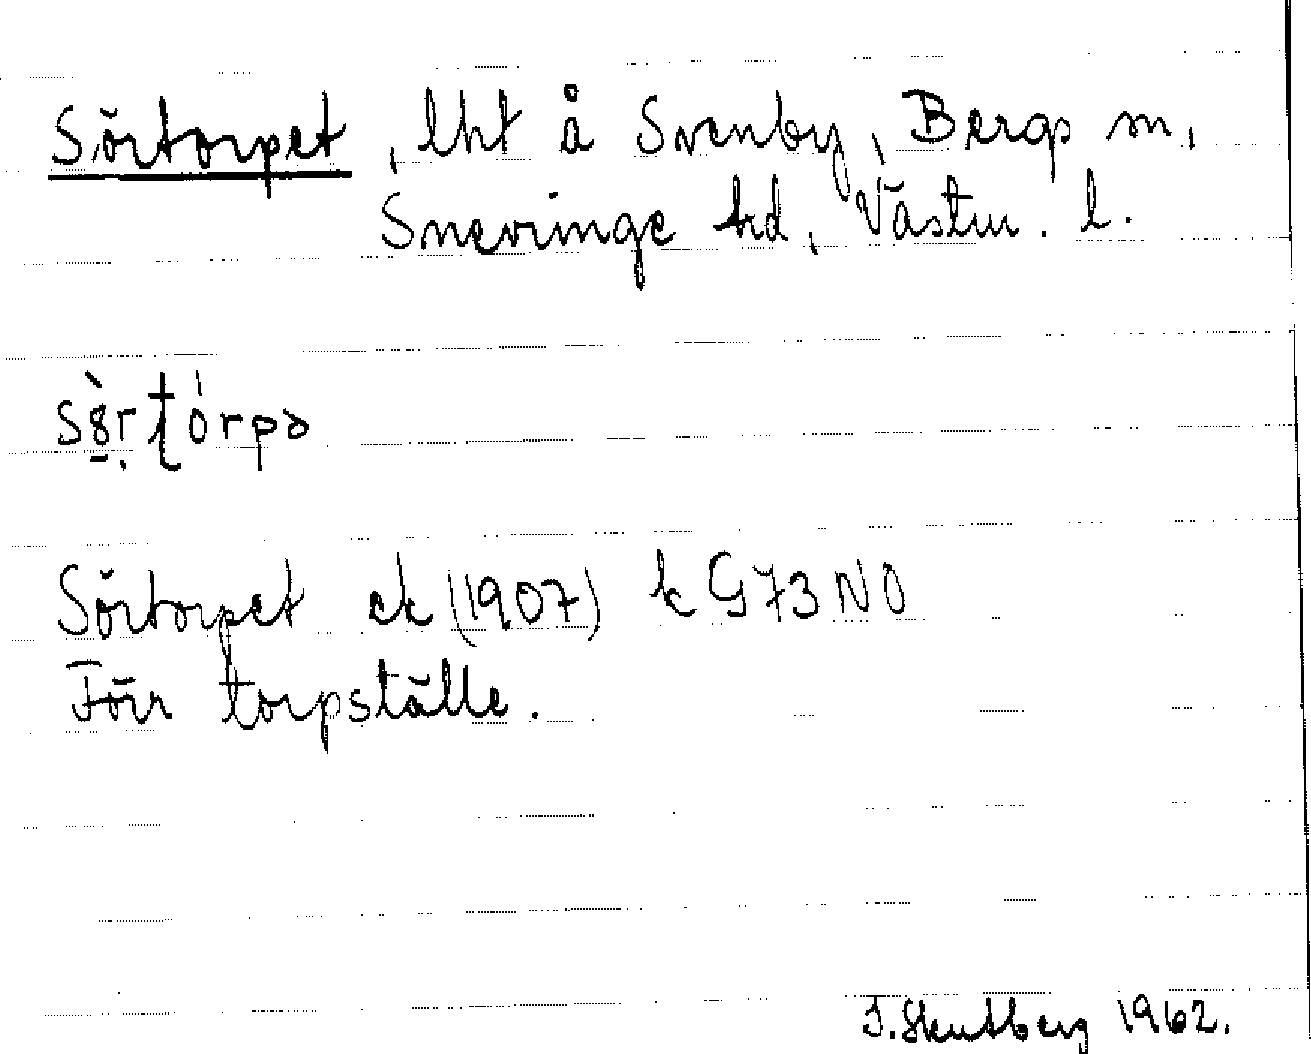 Sörtorpet, lht å Svenby, Bergs sn,
Snevringe hd, Västm. l.
Sörtorpet ek (1907) k G73NO
Förr torpställe.
J. Skutberg 1962.